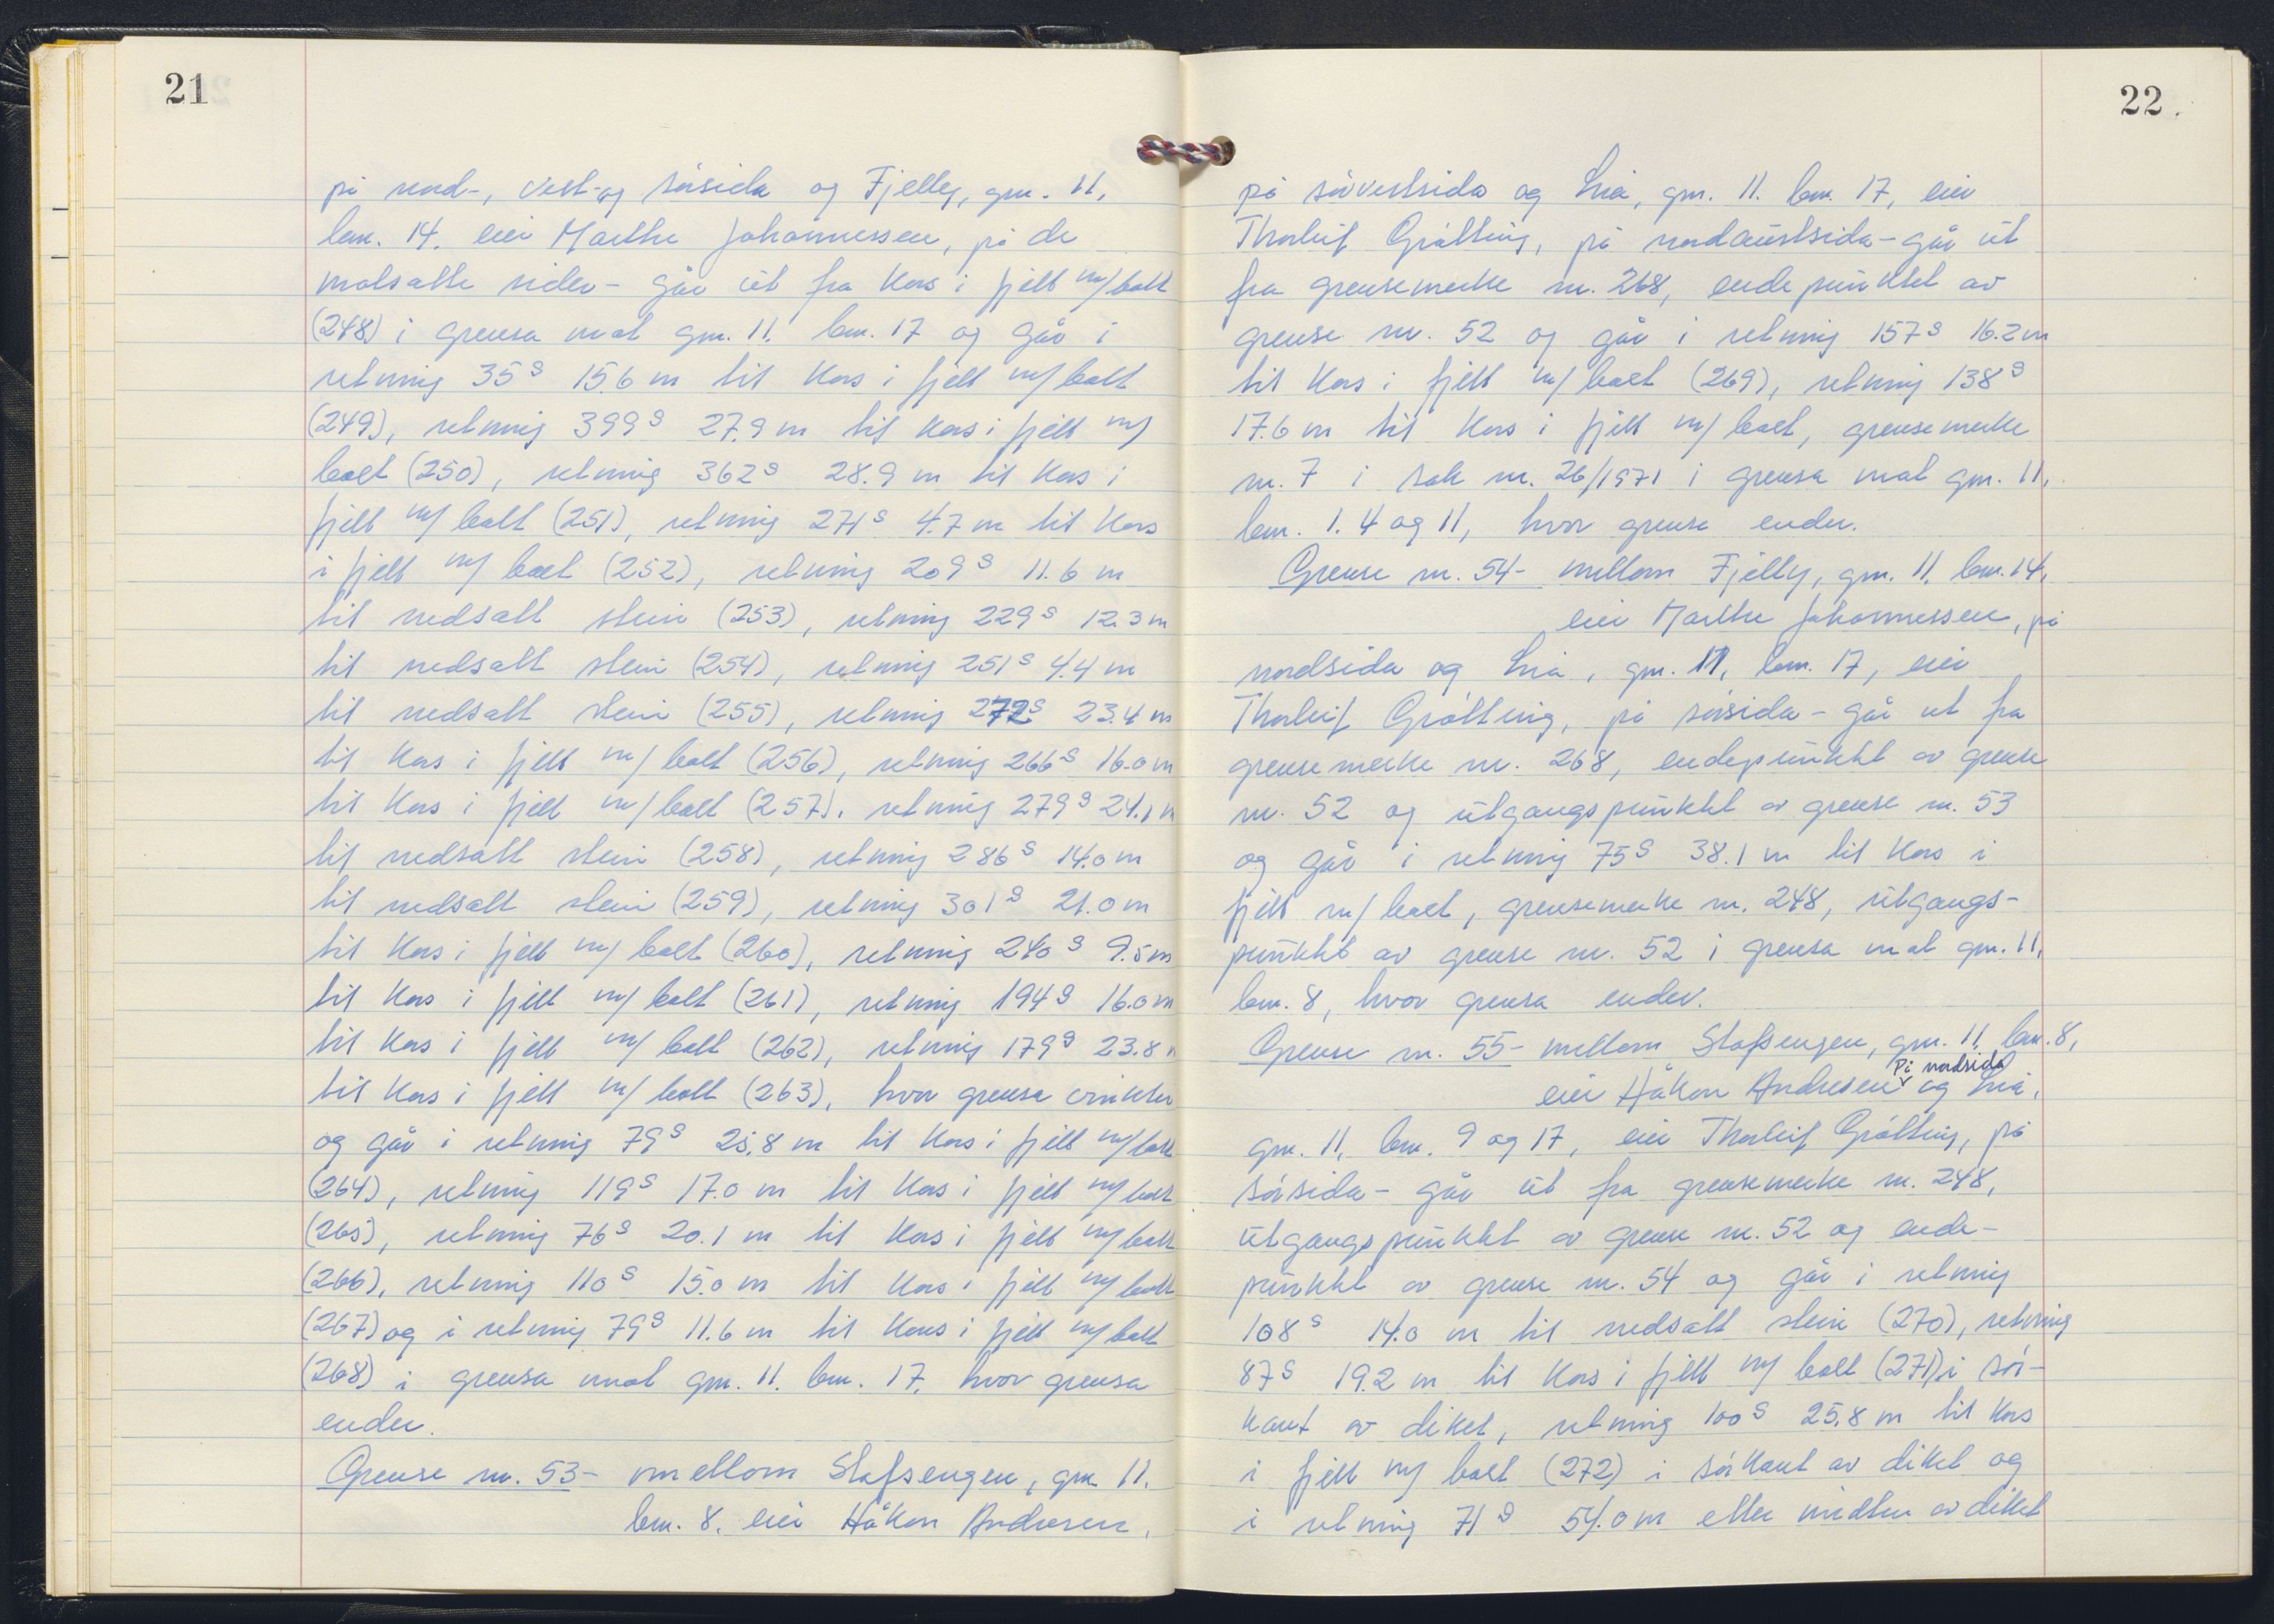 21
på nord-, vest- og sørsida og Fjelly, gnr. 11,
bnr. 14. eier Marthe Johannessen, på de
motsatte sider - går ut fra kors i fjell m/bolt
(248) i grensa mot gnr. 11. bnr. 17 og går i
retning 35g 15.6 m til kors i fjell m/ bolt
(249), retning 399g 27.9 m til kors i fjell m/
bolt (250), retning 362g 28.9 m til kors i
fjell m/ bolt (251), retning 271g 4.7 m til kors
i fjell m/ bolt (252), retning 209g 11.6 m
til nedsatt stein (253), retning 229g 12.3 m
til nedsatt stein (254), retning 251g 4.4 m
til nedsatt stein (255), retning 272g 23.4 m
til kors i fjell m/ bolt (256), retning 266g 16.0 m
til kors i fjell m/ bolt (257). retning 279g 24.1 m
til nedsatt stein (258), retning 286g 14.0 m
til nedsatt stein (259), retning 301g 21.0 m
til kors i fjell m/ bolt (260), retning 240g 9.5 m
til kors i fjell m/ bolt (261), retning 194g 16.0 m
til kors i fjell m/ bolt (262), retning 179g 23.8 m
til kors i fjell m/ bolt (263), hvor grensa vinkler
og går i retning 79g 25.8 m til kors i fjell m/bolt
(264), retning 119g 17.0 m til kors i fjell m/bolt
(265), retning 76g 20.1 m til kors i fjell m/bolt
(266), retning 110g 15.0 m til kors i fjell m/bolt
(267) og i retning 79g 11.6 m til kors i fjell m/bolt
(268) i grensa mot gnr. 11. bnr. 17. hvor grensa
ender.
Grense nr. 53- mellom Stafsengen, gnr 11.
bnr. 8. eier Håkon Andresen,
22.
på sørvestsida og Lia, gnr. 11. bnr. 17, eier
Thorleif Grøtting, på nordaustsida - går ut
fra grensemerke nr. 268, endepunktet av
grense nr. 52 og går i retning 157g 16.2 m
til kors i fjell m/ bolt (269), retning 138g
17.6 m til kors i fjell m/ bolt, grensemerke
nr. 7 i sak nr. 26/1971 i grensa mot gnr. 11,
bnr. 1. 4 og 11, hvor grensa ender.
Grense nr. 54- mellom Fjelly, gnr. 11, bnr. 14,
eier Marthe Johannessen, på
nordsida og Lia, gnr. 11, bnr. 17, eier
Thorleif Grøtting, på sørsida - går ut fra
grensemerke nr. 268, endepunktet av grense
nr. 52 og utgangspunktet av grense nr. 53
og går i retning 75g 38.1 m til kors i
fjell m/ bolt, grensemerke nr. 248, utgangs-
punktet av grense nr. 52 i grensa mot gnr. 11,
bnr. 8, hvor grensa ender.
Grense nr. 55- mellom Stafsengen, gnr. 11, bnr. 8,
eier Håkon Andresen på nordsida og Lia,
gnr. 11, bnr. 9 og 17, eier Thorleif Grøtting, på
sørsida - går ut fra grensemerke nr. 248,
utgangspunktet av grense nr. 52 og ende-
punktet av grense nr. 54 og går i retning
108g 14.0 m til nedsatt stein (270), retning
87g 19.2 m til kors i fjell m/ bolt (271) i sør-
kant av diket, retning 100g 25.8 m til kors
i fjell m/ bolt (272) i sørkant av diket og
i retning 71g 54.0 m etter midten av diket